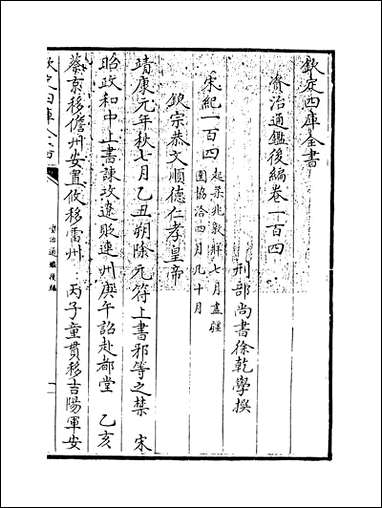 欽定四庫全書
資治通鑑後編卷一百四
刑部尚書徐乾學撰
宋紀一百四
起柔兆敦牂七月盡彊
圉協洽四月凡十月
欽宗恭文順德仁孝皇帝
靖康元年秋七月乙丑朔除元符上書邪等之禁 宋
昭政和中上書諫攻遼貶連州庚午詔赴都堂 乙亥
蔡京移儋州安置攸移雷州 丙子童貫移吉陽軍安
資治通鑑後編